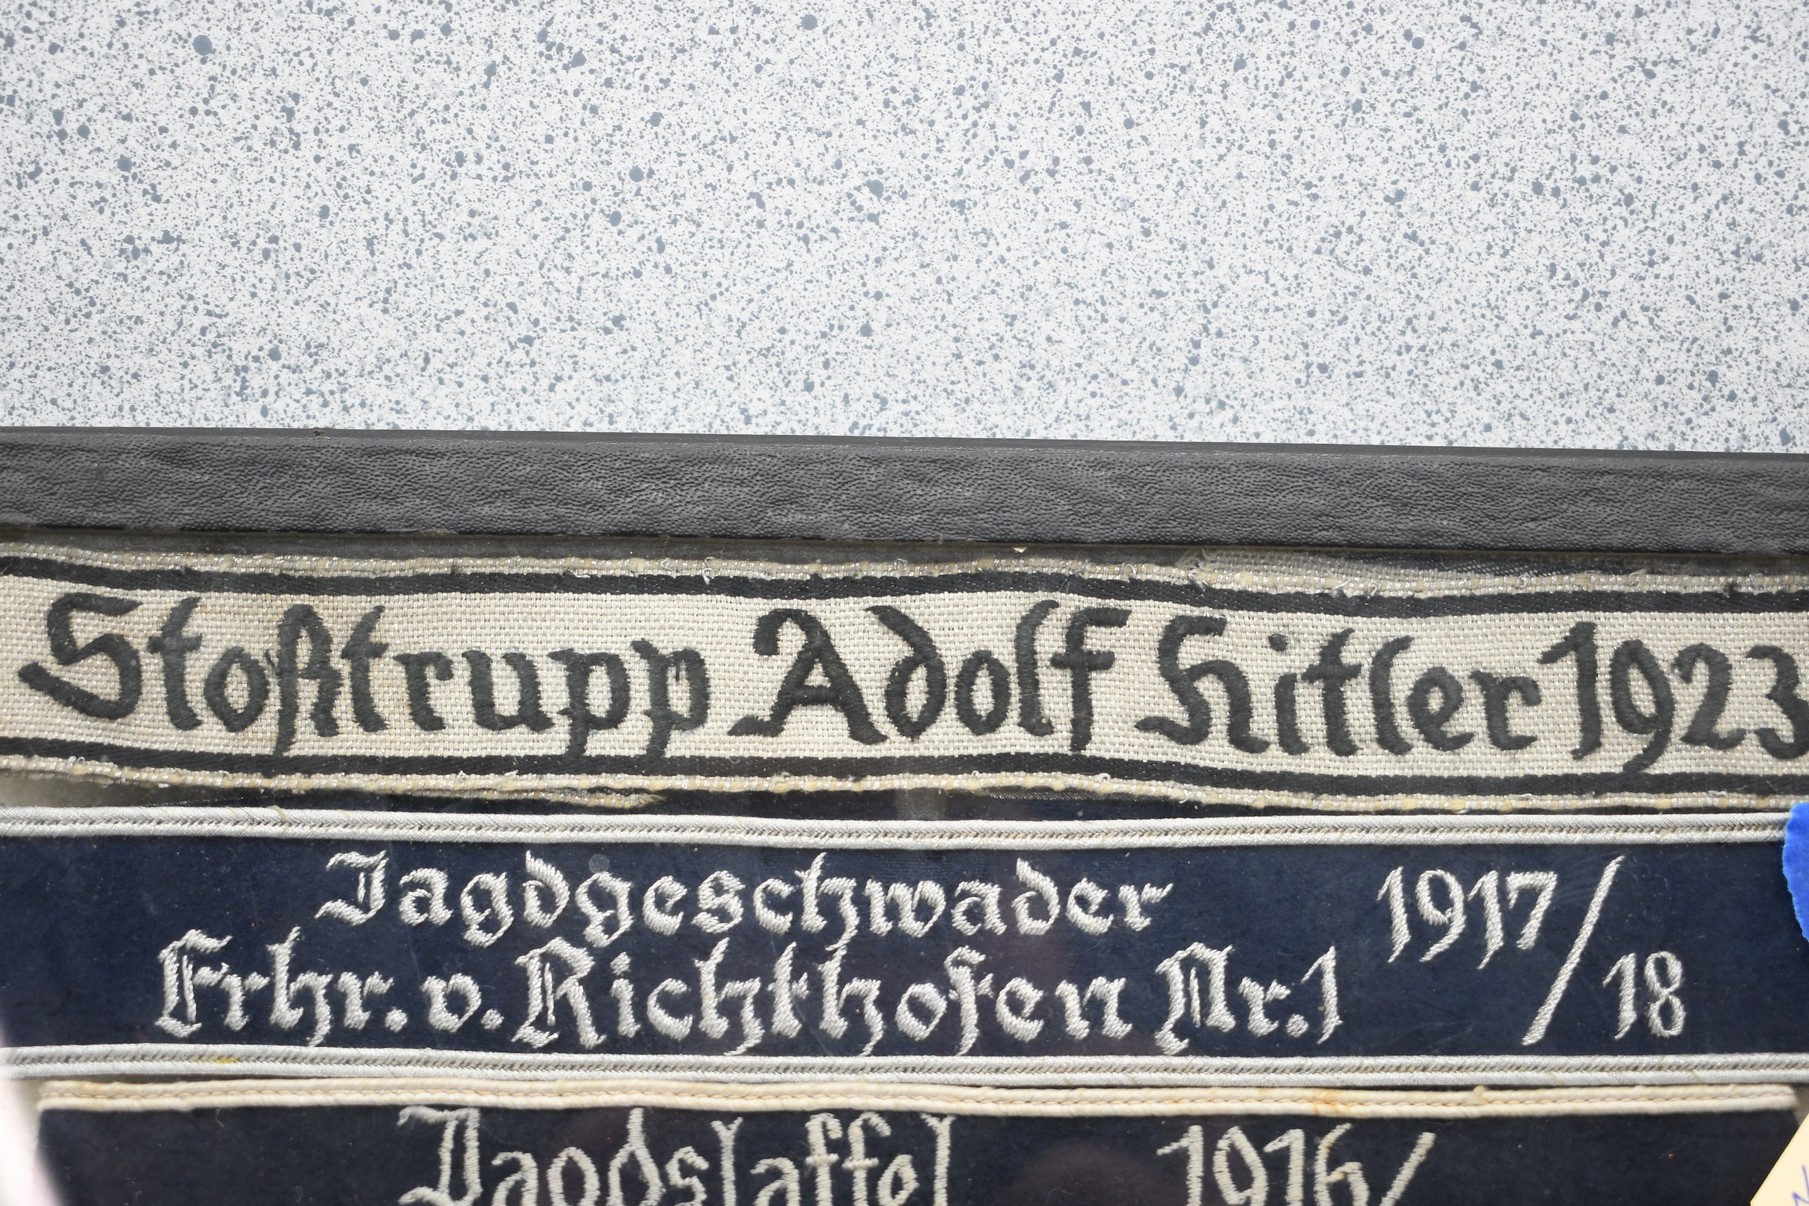 Stoßtrupp Adolf Hitler 1923
Jagdgeschwader 1917/18
Frhr. v. Richthofen Nr. 1
Jagdstaffel 1916/